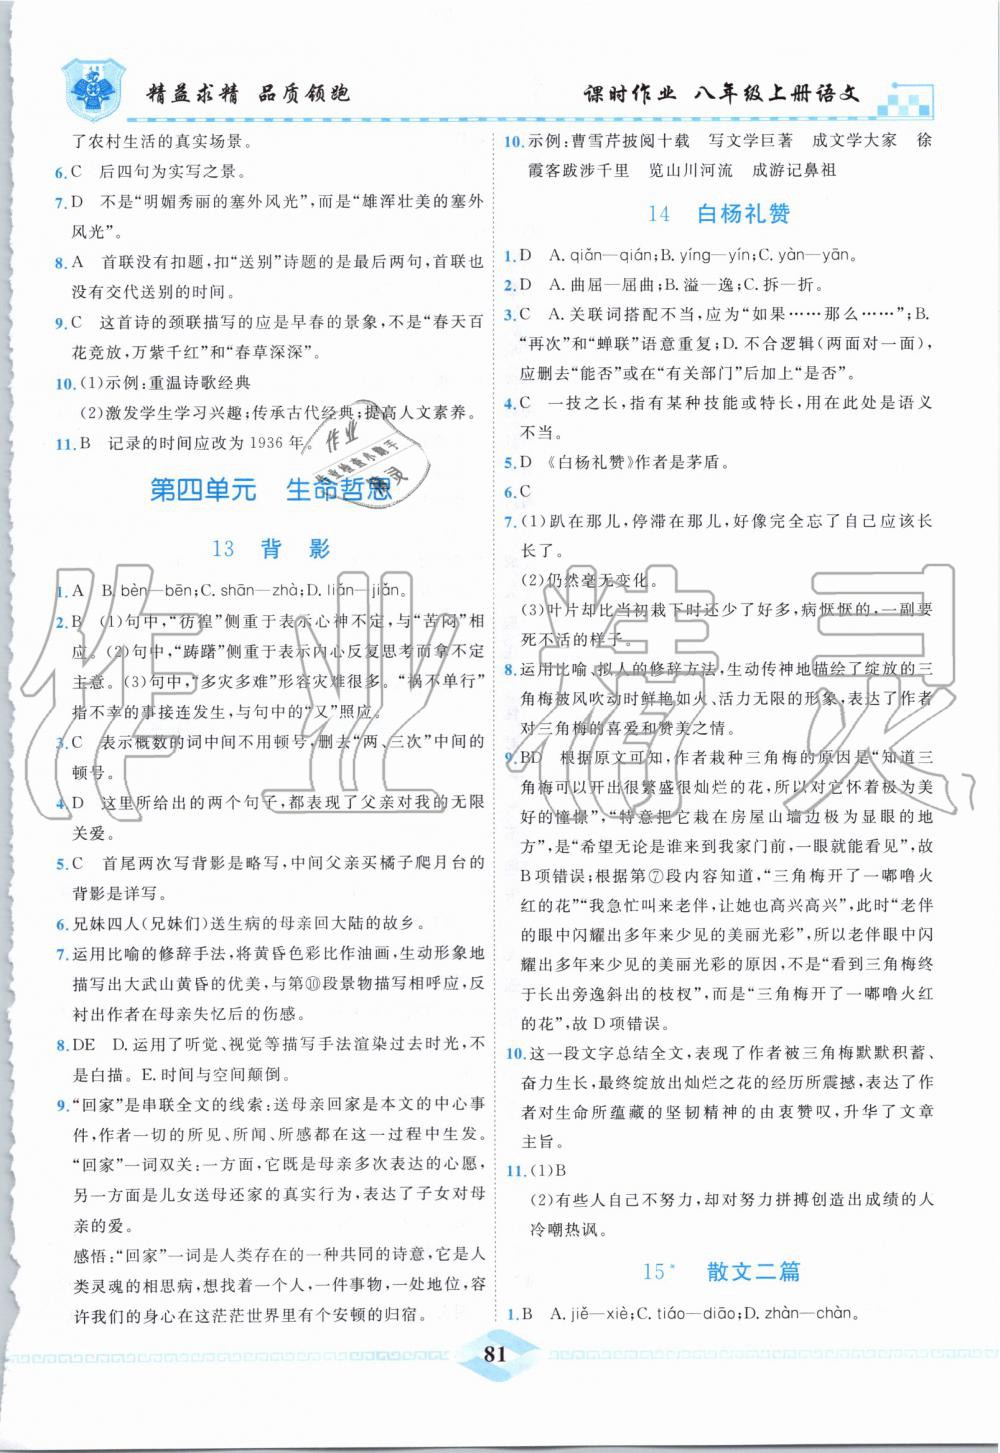 精益求精 品质领跑
课时作业 八年级上册语文
了农村生活的真实场景。
6.C 后四句为实写之景。
7.D 不是“明媚秀丽的塞外风光”,而是“雄浑壮美的塞外
风光”。
8.A 首联没有扣题,扣“送别”诗题的是最后两句,首联也
没有交代送别的时间。
9.C 这首诗的颈联描写的应是早春的景象,不是“春天百
花竞放,万紫千红”和“春草深深”。
10.(1)示例:重温诗歌经典
(2)激发学生学习兴趣;传承古代经典;提高人文素养。
11.B 记录的时间应改为1936年。
第四单元 生命哲思
13 背 影
1.A B.bèn—bēn;C.shān—zhà;D.liǎn—jiǎn.
2.B (1)句中,“彷徨”侧重于表示心神不定,与“苦闷”相
应。(2)句中,“踌躇”侧重于表示内心反复思考而拿不定
主意。(3)句中,“多灾多难”形容灾难很多。“祸不单行”
指不幸的事接连发生,与句中的“又”照应。
3.C 表示概数的词中间不用顿号,删去“两、三次”中间的
顿号。
4.D 这里所给出的两个句子,都表现了父亲对我的无限
关爱。
5.C 首尾两次写背影是略写,中间父亲买橘子爬月台的
背影是详写。
6.兄妹四人(兄妹们)送生病的母亲回大陆的故乡。
7.运用比喻的修辞手法,将黄昏色彩比作油画,生动形象地
描写出大武山黄昏的优美,与第⑩段景物描写相呼应,反
衬出作者在母亲失忆后的伤感。
8.DE D.运用了听觉、视觉等描写手法渲染过去时光,不
是白描。E.时间与空间颠倒。
9.“回家”是串联全文的线索:送母亲回家是本文的中心事
件,作者一切的所见、所闻、所感都在这一过程中生发。
“回家”一词双关:一方面,它既是母亲多次表达的心愿,
另一方面是儿女送母还家的真实行为,表达了子女对母
亲的爱。
感悟:“回家”一词是人类存在的一种共同的诗意,它是我
们人类灵魂的相思病,不管一个人,一件事物,一处地方,容
许我们的身心在这茫茫世界里有个安顿的归宿。
10.示例:曹雪芹披阅十载 写文学巨著 成文学大家 徐
霞客跋涉千里 览山川河流 成游记鼻祖
14 白杨礼赞
1.D A.qiǎn—qián;B.yíng—yín;C.yàn—yān.
2.D A.曲屈—屈曲;B.溢—逸;C.拆—折。
3.C A.关联词搭配不当,应为“如果……那么……”;B.
“再次”和“蝉联”语意重复;D.不合逻辑(两面对一面),
应删去“能否”或在“有关部门”后加上“是否”。
4.C 一技之长,指有某种技能或特长,用在此处是语义
不当。
5.D 《白杨礼赞》作者是茅盾。
6.C
7.(1)趴在那儿,停滞在那儿,好像完全忘了自己应该长
长了。
(2)仍然毫无变化。
(3)叶片却比当初栽下时还少了好多,病恹恹的,一副要
死不活的样子。
8.运用比喻、拟人的修辞方法,生动传神地描绘了绽放的三
角梅被风吹动时鲜艳如火、活力无限的形象,表达了作者
对三角梅的喜爱和赞美之情。
9.BD 根据原文可知,作者栽种三角梅的原因是“知道三
角梅可以开出很繁盛很灿烂的花,所以对它怀着极为美
好的憧憬”,“特意把它栽在房屋山墙边极为显眼的地
方”,是“希望无论是谁来到我家门前,一眼就能看见”,故
B项错误;根据第⑦段内容知道,“三角梅开了一嘟噜火红
的花”“我急忙叫来老伴,让她也高兴高兴”,此时“老伴
的眼中闪耀出多年来少见的美丽光彩”,所以老伴眼中闪
耀出多年来少见的美丽光彩的原因,不是“看到三角梅终
于长出旁逸斜出的枝杈”,而是“三角梅开了一嘟噜火红
的花”,故D项错误。
10.这一段文字总结全文,表现了作者被三角梅默默积蓄、
奋力生长,最终绽放出灿烂之花的经历所震撼,表达了作
者对生命所蕴藏的坚韧精神的由衷赞叹,升华了文章
主旨。
11.(1)B
(2)有些人自己不努力,却对努力拼搏创造出成绩的人
冷嘲热讽。
15* 散文二篇
1.B A.jiě—xiè;C.tiáo—diāo;D.zhàn—chàn.
81
作业精灵
作业
作业检查小助手
精灵